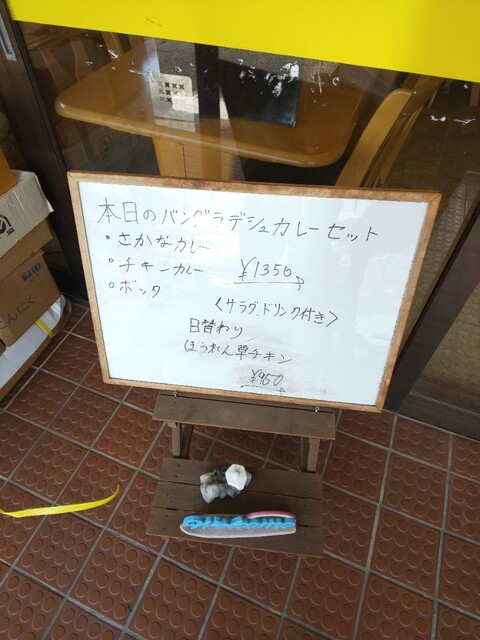 本日のバングラデシュカレーセット
・さかなカレー
・チキンカレー ¥1350
・ボッタ
〈サラダ、ドリンク付き〉
日替わり
ほうれん草チキン
¥950
にんにく